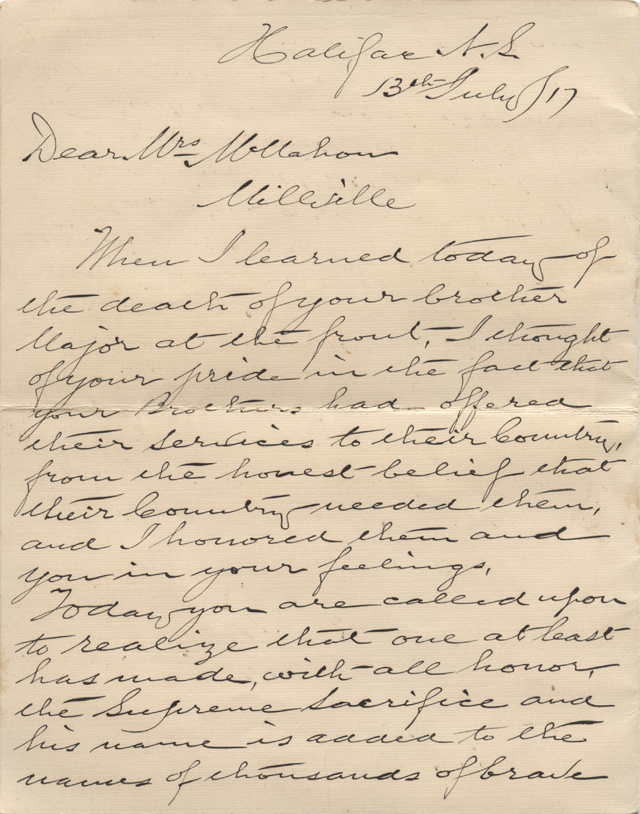 Halifax N.S.
13th July /17
Dear Mrs McMahon
Millville
When I learned today of
the death of your brother
Major at the front, I thought
of your pride in the fact that
your Brothers had offered
their services to their Country,
from the honest belief that
their Country needed them,
and I honored them and
you in your feelings.
Today you are called upon
to realize that one at least
has made, with all honor,
the Supreme Sacrifice and
his name is added to the
names of thousands of brave